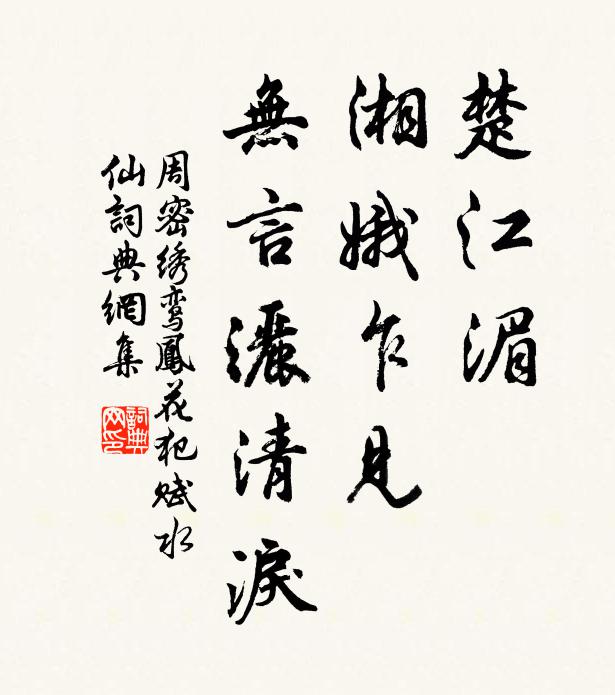 楚江湄
湘娥乍見
無言灑清淚
周密绣鸾鳳花犯賦水
仙詞典網集
詞典
网印